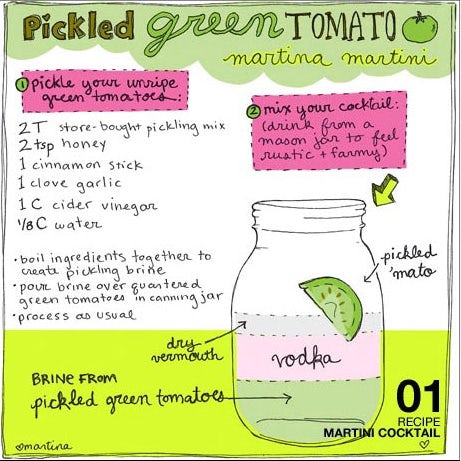 Pickled green TOMATO
martina martini
1 pickle your unripe
green tomatoes:
2 T store-bought pickling mix
2 tsp honey
1 cinnamon stick
1 clove garlic
1 C cider vinegar
1/8 C water
• boil ingredients together to
create pickling brine
• pour brine over quartered
green tomatoes in canning jar
• process as usual
2 mix your cocktail:
(drink from a
mason jar to feel
rustic + farmy)
pickled
'mato
dry
vermouth
vodka
BRINE FROM
pickled green tomatoes
01
RECIPE
MARTINI COCKTAIL
martina